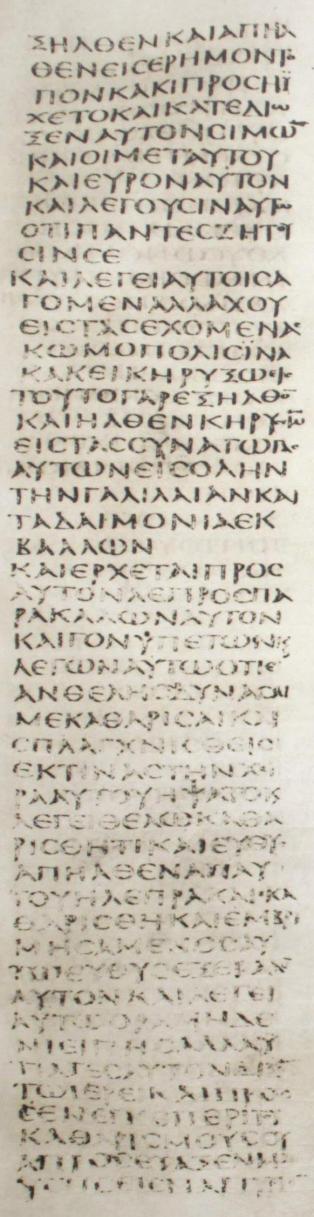 ΞΗΛΘΕΝΚΑΙΑΠΗΛ
ΘΕΝΕΙCΕΡΗΜΟΝΤΟ
ΠΟΝΚΑΚΙΠΡΟCΗΫ
ΧΕΤΟΚΑΙΚΑΤΕΔΙΩ
ΞΕΝΑΥΤΟΝCΙΜΩ̅
ΚΑΙΟΙΜΕΤΑΥΤΟΥ
ΚΑΙΕΥΡΟΝΑΥΤΟΝ
ΚΑΙΛΕΓΟΥCΙΝΑΥΤΩ
ΟΤΙΠΑΝΤΕCΖΗΤΟΥ
CΙΝCΕ
ΚΑΙΛΕΓΕΙΑΥΤΟΙCΑ
ΓΟΜΕΝΑΛΛΑΧΟΥ
ΕΙCΤΑCΕΧΟΜΕΝΑC
ΚΩΜΟΠΟΛΙCΪΝΑ
ΚΑΚΕΙΚΗΡΥΞΩΕΙC
ΤΟΥΤΟΓΑΡΕΞΗΛΘΟ̅
ΚΑΙΗΛΘΕΝΚΗΡΥCCΩ̅
ΕΙCΤΑCCΥΝΑΓΩΓΑC
ΑΥΤΩΝΕΙCΟΛΗΝ
ΤΗΝΓΑΛΙΛΑΙΑΝΚΑΙ
ΤΑΔΑΙΜΟΝΙΑΕΚ
ΒΑΛΛΩΝ
ΚΑΙΕΡΧΕΤΑΙΠΡΟC
ΑΥΤΟΝΛΕΠΡΟCΠΑ
ΡΑΚΑΛΩΝΑΥΤΟΝ
ΚΑΙΓΟΝΥΠΕΤΩΝΚ
ΛΕΓΩΝΑΥΤΩΟΤΙΕ
ΑΝΘΕΛΗCΔΥΝΑCΑΙ
ΜΕΚΑΘΑΡΙCΑΙΚΑΙ
CΠΛΑΓΧΝΙCΘΕΙC
ΕΚΤΙΝΑCΤΗΝΧΕΙ
ΡΑΑΥΤΟΥΗΨΑΤΟΚ
ΛΕΓΕΙΘΕΛΩΚΑΘΑ
ΡΙCΘΗΤΙΚΑΙΕΥΘΥC
ΑΠΗΛΘΕΝΑΠΑΥ
ΤΟΥΗΛΕΠΡΑΚΑΙΕΚΑ
ΘΑΡΙCΘΗΚΑΙΕΜΒΡΙ
ΜΗCΑΜΕΝΟCΑΥ
ΤΩΕΥΘΥCΕΞΕΒΑΛΕΝ
ΑΥΤΟΝΚΑΙΛΕΓΕΙ
ΑΥΤΩΟΡΑΜΗΔΕ
ΝΙΕΙΠΗCΑΛΛΑΥ
ΠΑΓΕCΕΑΥΤΟΝΔΙΞΟ
ΤΩΙΕΡΕΙΚΑΙΠΡΟC
ΕΝΕΓΚΕΠΕΡΙΤΟΥ
ΚΑΘΑΡΙCΜΟΥCΟΥ
ΑΠΡΟCΕΤΑΞΕΝΜΩ